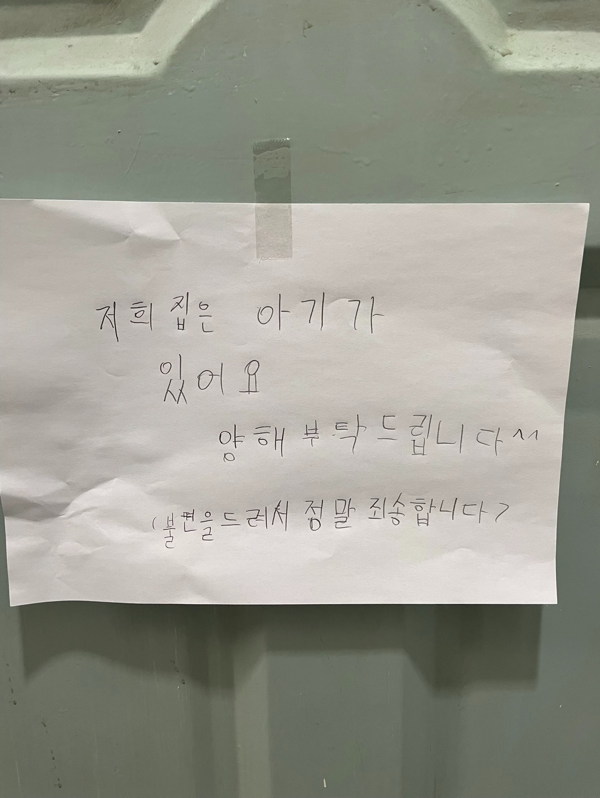 저희 집은 아기가
있어요
양해 부탁드립니다^^
(불편을 드려서 정말 죄송합니다)